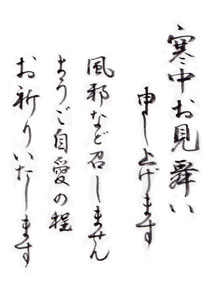 寒中お見舞い
申し上げます
風邪など召しませぬ
ようご自愛の程
お祈りいたします